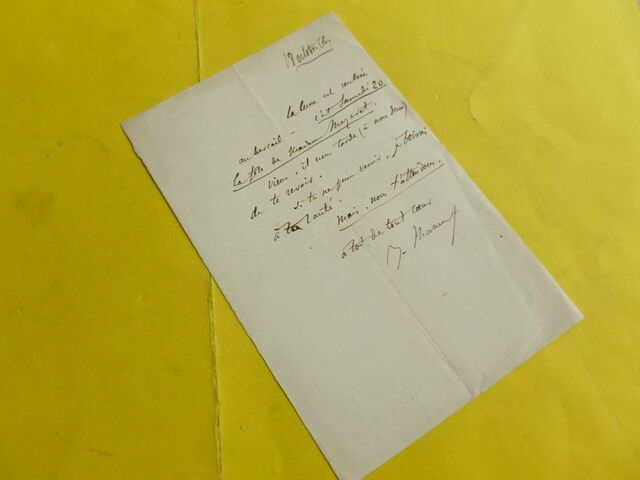 18 octobre 66.
la lune est rentrée
au bercail – c'est Samedi 20
la fête de Madame Mazeret.
viens, il nous tarde (à nous deux)
de te revoir.
Si tu ne peux venir, je boirai
à ta santé.
mais, nous t'attendons.
à toi de tout cœur